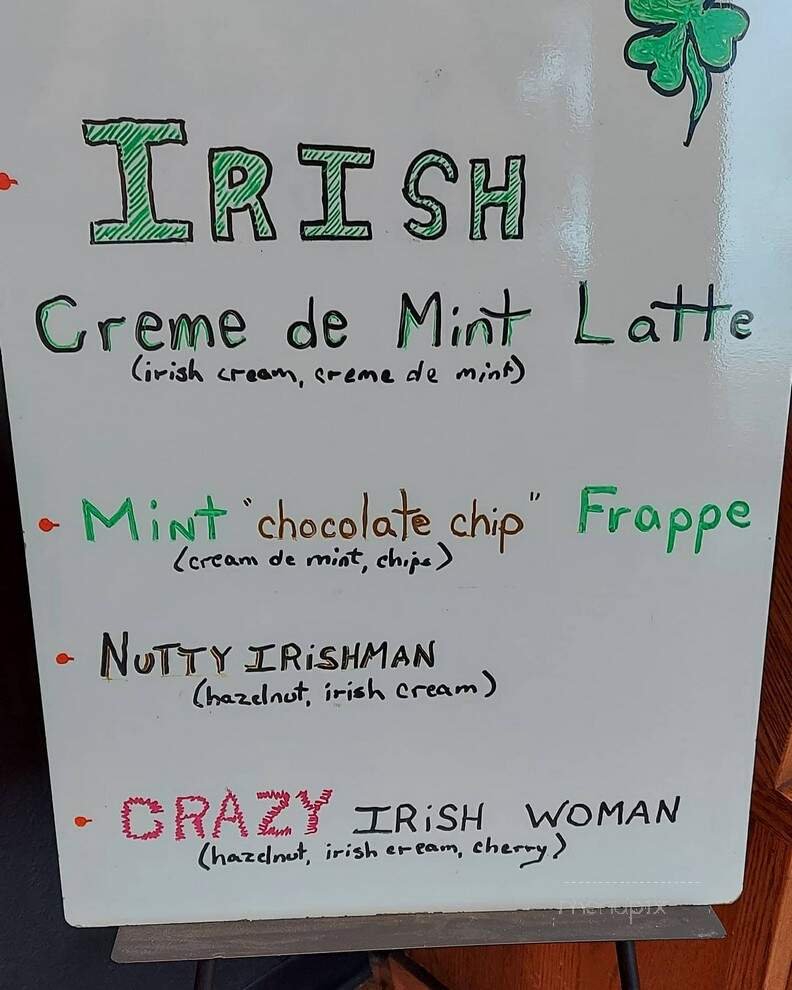 IRISH
Creme de Mint Latte
(irish cream, creme de mint)
Mint "chocolate chip" Frappe
(cream de mint, chips)
NUTTY IRiSHMAN
(hazelnut, irish cream)
CRAZY IRiSH WOMAN
(hazelnut, irish cream, cherry)
menupix